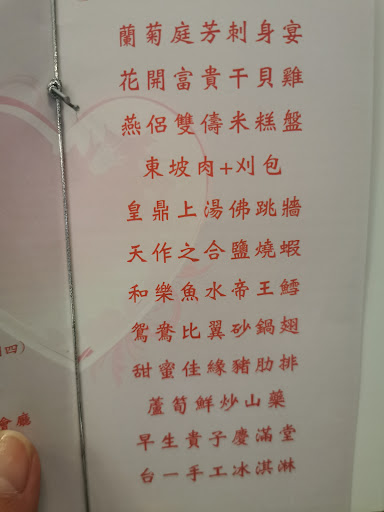 蘭菊庭芳刺身宴
花開富貴干貝雞
燕侶雙儔米糕盤
東坡肉+刈包
皇鼎上湯佛跳牆
天作之合鹽燒蝦
和樂魚水帝王鱈
鴛鴦比翼砂鍋翅
甜蜜佳緣豬肋排
蘆筍鮮炒山藥
早生貴子慶滿堂
台一手工冰淇淋
四)
會廳